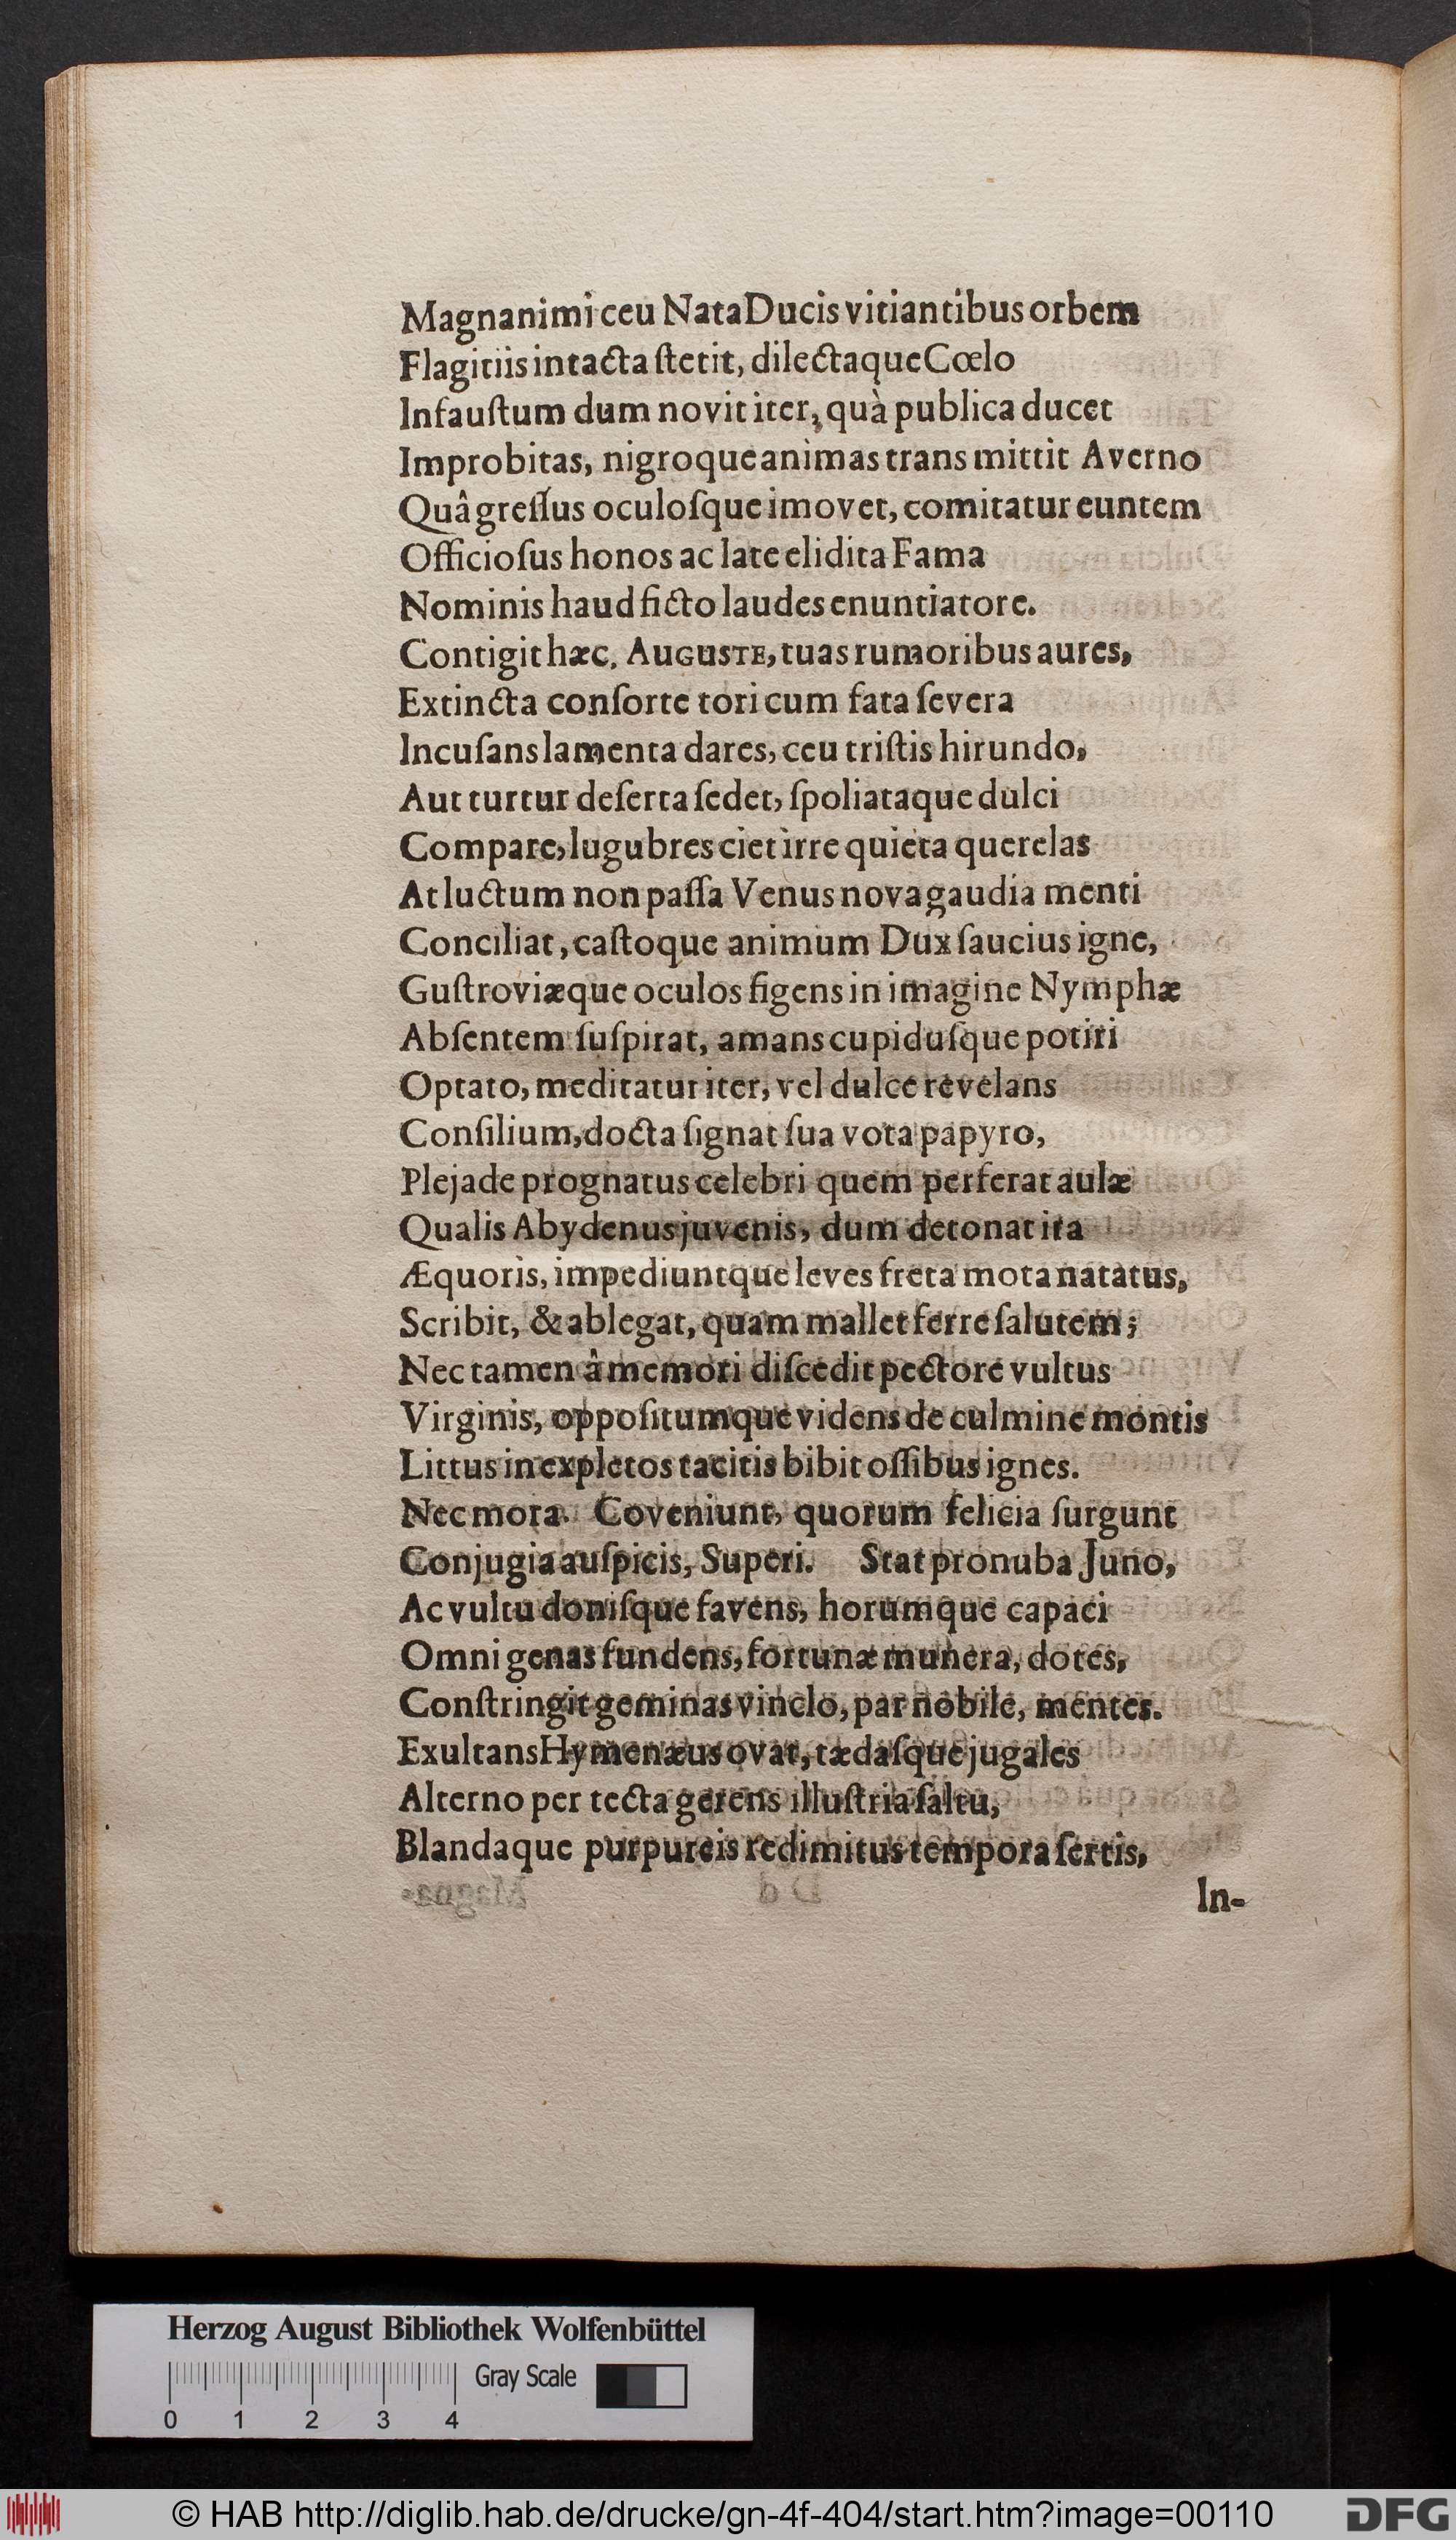 Magnanimi ceu Nata Ducis vitiantibus orbem
Flagitiis intacta ſtetit, dilectaque Cœlo
Infauſtum dum novit iter, quà publica ducet
Improbitas, nigroque animas trans mittit Averno
Quâ greſſus oculoſque imovet, comitatur euntem
Officioſus honos ac late elidita Fama
Nominis haud ficto laudes enuntiatore.
Contigit hæc, AUGUSTE, tuas rumoribus aures,
Extincta conſorte tori cum fata ſevera
Incuſans lamenta dares, ceu triſtis hirundo,
Aut turtur deſerta ſedet, ſpoliataque dulci
Compare, lugubres ciet irre quieta querelas
At luctum non paſſa Venus nova gaudia menti
Conciliat, caſtoque animum Dux ſaucius igne,
Guſtroviæque oculos figens in imagine Nymphæ
Abſentem ſuſpirat, amans cupiduſque potiri
Optato, meditatur iter, vel dulce revelans
Conſilium, docta ſignat ſua vota papyro,
Plejade prognatus celebri quem perferat aulæ
Qualis Abydenus juvenis, dum detonat ira
Æquoris, impediuntque leves freta mota natatus,
Scribit, & ablegat, quam mallet ferre ſalutem;
Nec tamen â memori diſcedit pectore vultus
Virginis, oppoſitumque videns de culmine montis
Littus in expletos tacitis bibit oſſibus ignes.
Nec mora. Coveniunt, quorum felicia ſurgunt
Conjugia auſpicis, Superi. Stat pronuba Juno,
Ac vultu doniſque favens, horumque capaci
Omni genas fundens, fortunæ munera, dotes,
Conſtringit geminas vinclo, par nobile, mentes.
Exultans Hymenæus ovat, tædaſque jugales
Alterno per tecta gerens illuſtria ſaltu,
Blandaque purpureis redimitus tempora ſertis,
In-
Herzog August Bibliothek Wolfenbüttel
Gray Scale
0 1 2 3 4
© HAB http://diglib.hab.de/drucke/gn-4f-404/start.htm?image=00110
DFG